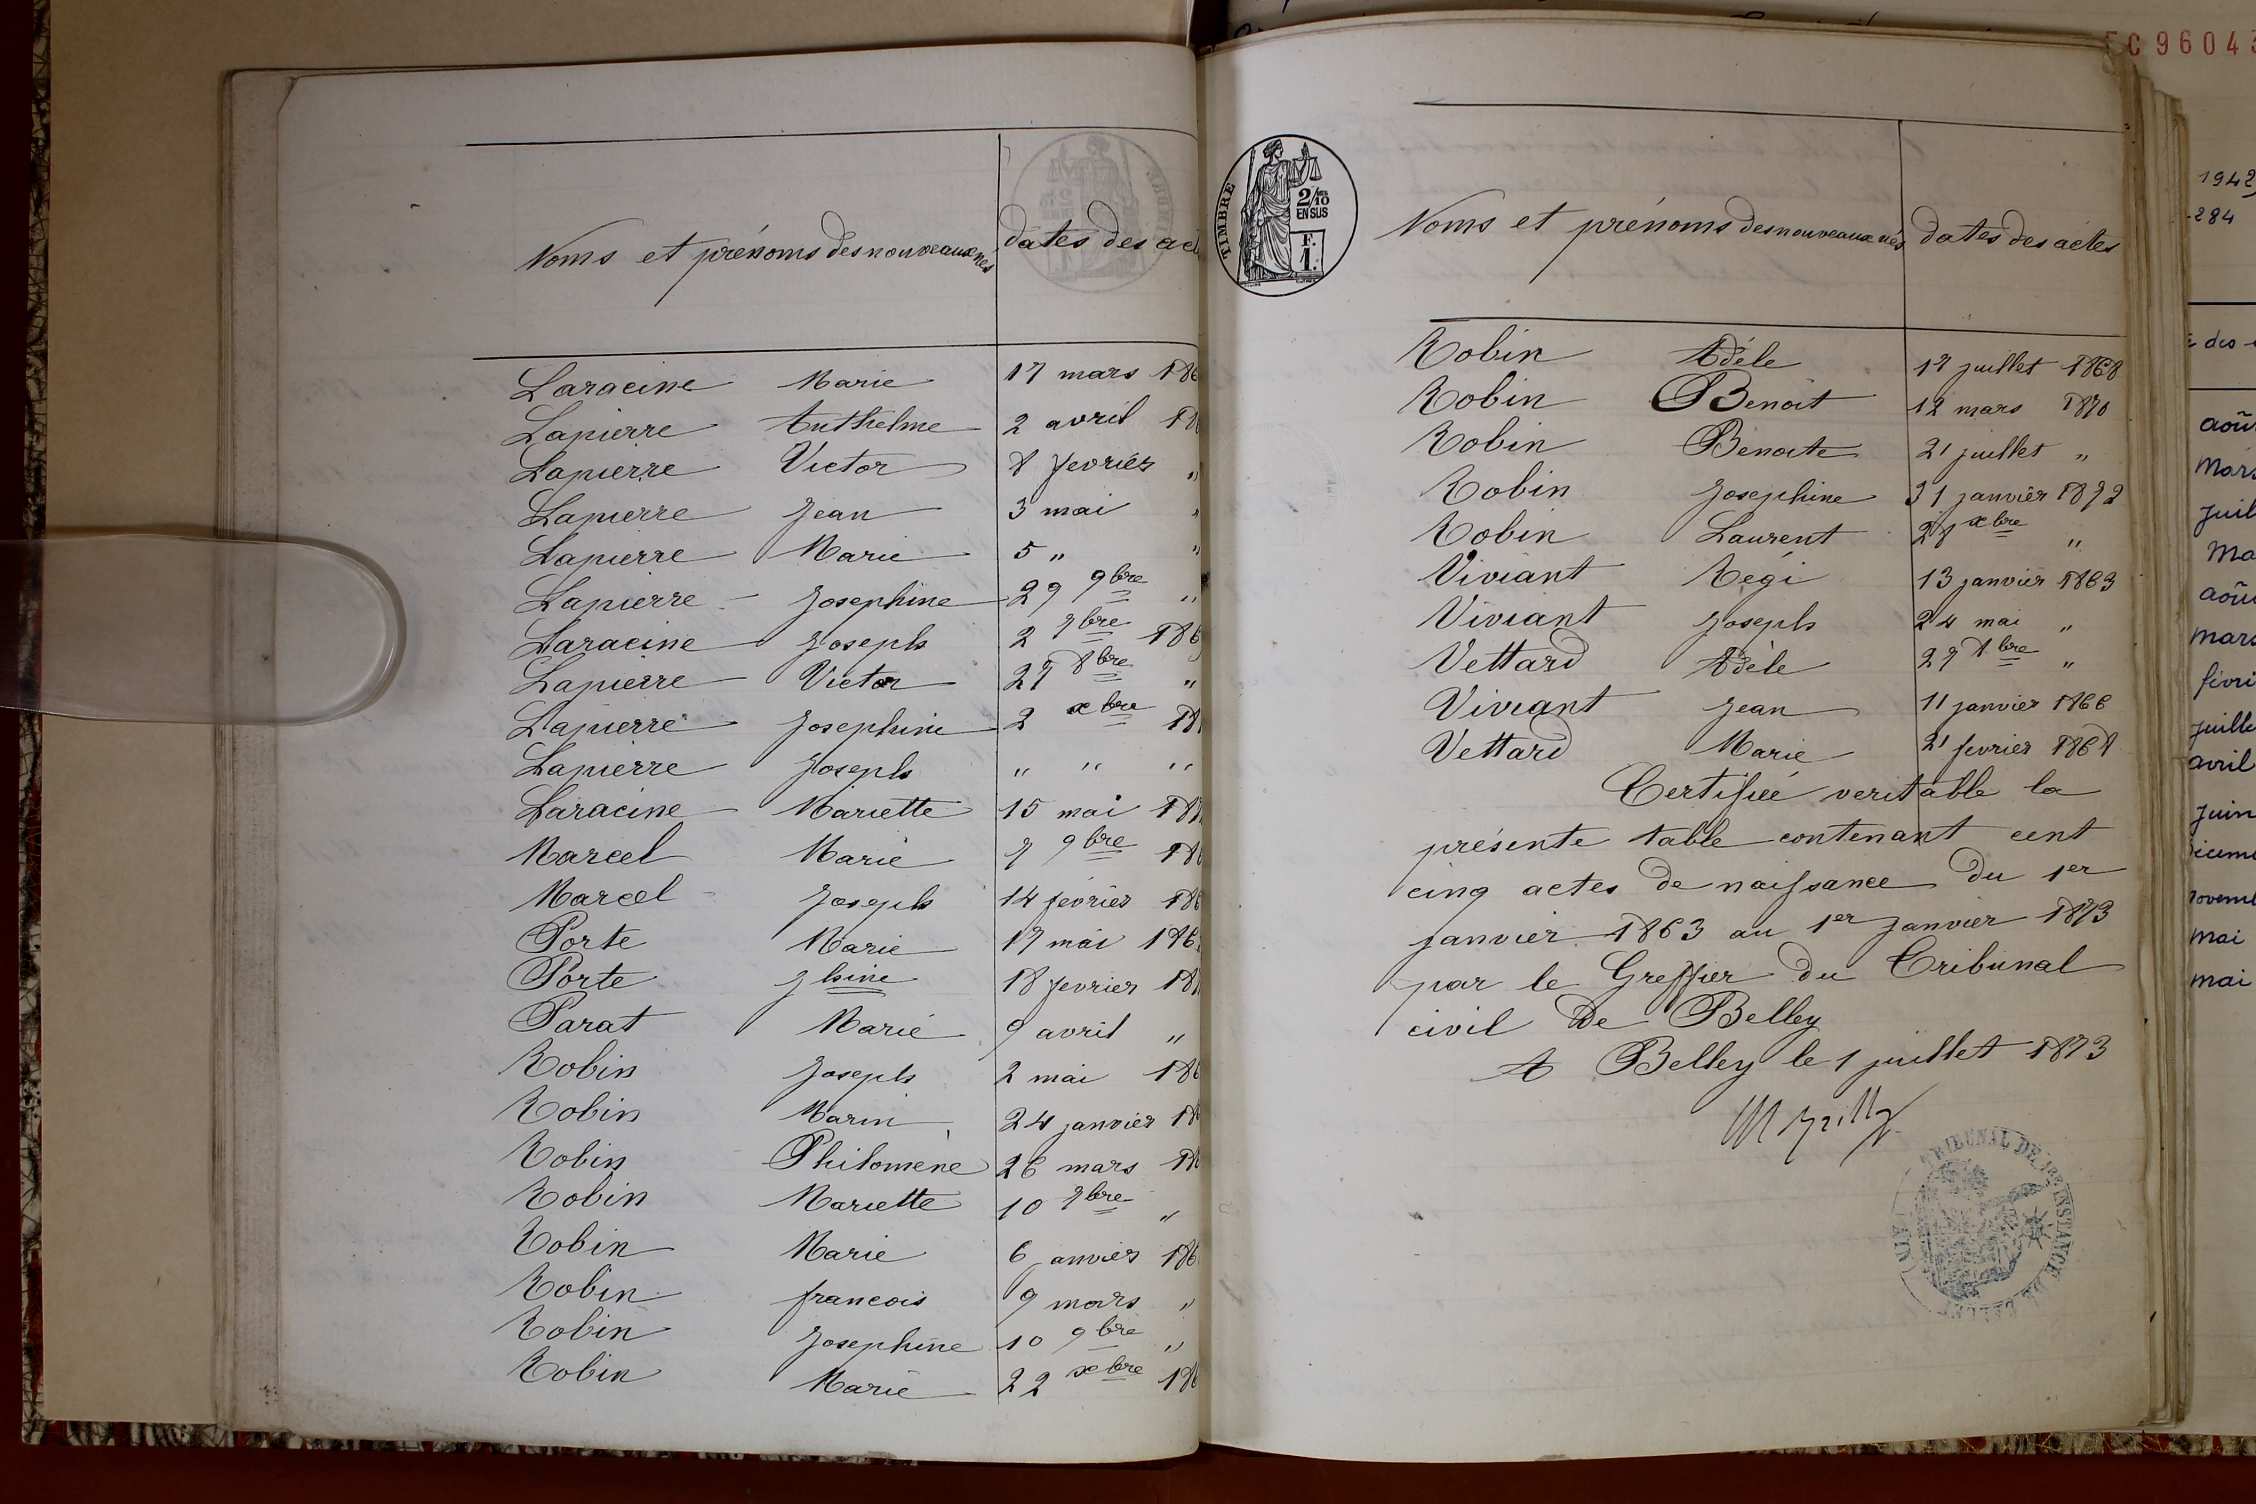 Noms et prénoms des nouveaux nés dates des act
Laracine Marie 17 mars 186
Lapierre Anthelme 2 avril 18
Lapierre Victor 8 fevrier "
Lapierre Jean 3 mai "
Lapierre Marie 5 " "
Lapierre Josephine 29 9bre "
Laracine Joseph 2 7bre 186
Lapierre Victor 27 8bre "
Lapierre Josephine 2 xbre 18
Lapierre Joseph " " "
Laracine Mariette 15 mai 187
Marcel Marie 7 9bre 18
Marcel Joseph 14 fevrier 186
Porte Marie 17 mai 186
Porte Jhine 18 fevrier 18
Parat Marie 9 avril "
Robin Joseph 2 mai 186
Robin Marin 24 janvier 18
Robin Philomène 26 mars 18
Robin Mariette 10 7bre "
Robin Marie 6 janvier 186
Robin francois 9 mars "
Robin Josephine 10 9bre "
Robin Marie 22 xbre 186
TIMBRE
2/10 EN SUS
F. 1.
Noms et prénoms des nouveaux nés dates des actes
Robin Adèle 12 juillet 1868
Robin Benoit 12 mars 1870
Robin Benoite 21 juillet "
Robin Josephine 31 janvier 1872
Robin Laurent 28 xbre "
Viviant Régi 13 janvier 1863
Viviant Joseph 24 mai "
Vettard Adèle 27 8bre "
Viviant Jean 11 janvier 1866
Vettard Marie 21 fevrier 1868
Certifiée veritable la
présente table contenant cent
cinq actes de naissance du 1er
janvier 1863 au 1er janvier 1873
par le Greffier du Tribunal
civil de Belley
A Belley le 1 juillet 1873
TRIBUNAL DE 1ère INSTANCE DE BELLEY (AIN)
C96043
1942
284
des
aoû
Mars
juil
Ma
aoû
mars
févri
juille
avril
juin
mai
mai